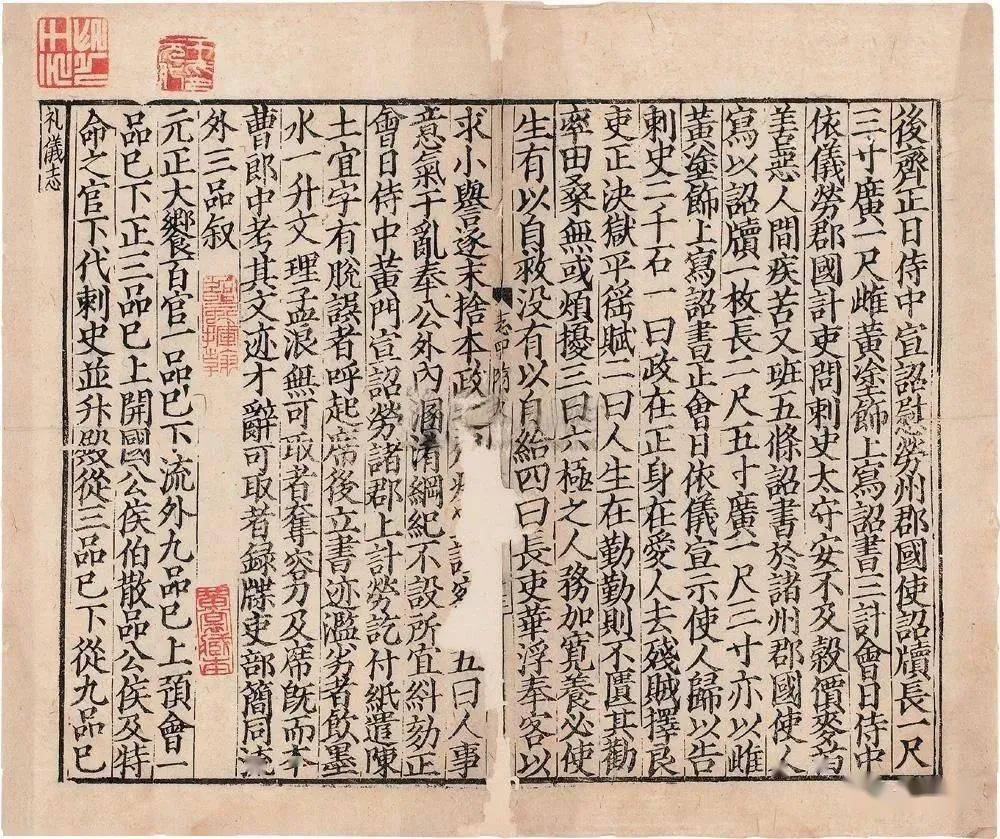 後齊正日侍中宣詔慰勞州郡國使詔牘長一尺
三寸廣一尺雌黃塗飾上寫詔書三計會日侍中
依儀勞郡國計吏問刺史太守安不及穀價麥苗
善惡人間疾苦又班五條詔書於諸州郡國使人
寫以詔牘一枚長二尺五寸廣一尺三寸亦以雌
黃塗飾上寫詔書正會日依儀宣示使人歸以告
刺史二千石一曰政在正身在愛人去殘賊擇良
吏正決獄平徭賦二曰人生在勤勤則不匱其勸
率田桑無或煩擾三曰六極之人務加寬養必使
生有以自救没有以自給四曰長吏華浮奉客以
志四 隋
求小譽逐末捨本政 五曰人事
意氣干亂奉公外內溷淆綱紀不設所宜糾劾正
會日侍中黃門宣詔勞諸郡上計勞訖付紙遣陳
土宜字有脫誤者呼起席後立書迹濫劣者飲墨
水一升文理孟浪無可取者奪容刀及席既而本
曹郎中考其文迹才辭可取者録牒吏部簡同流
外三品叙
元正大饗百官一品已下流外九品已上預會一
品已下正三品已上開國公侯伯散品公侯及特
命之官下代刺史並升殿從三品已下從九品已
礼儀志